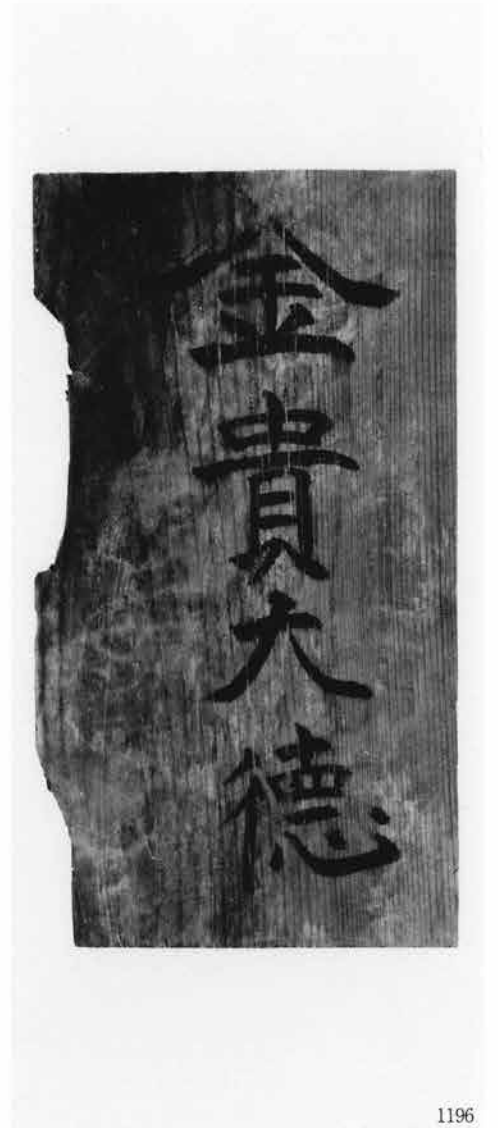 金貴大徳
1196